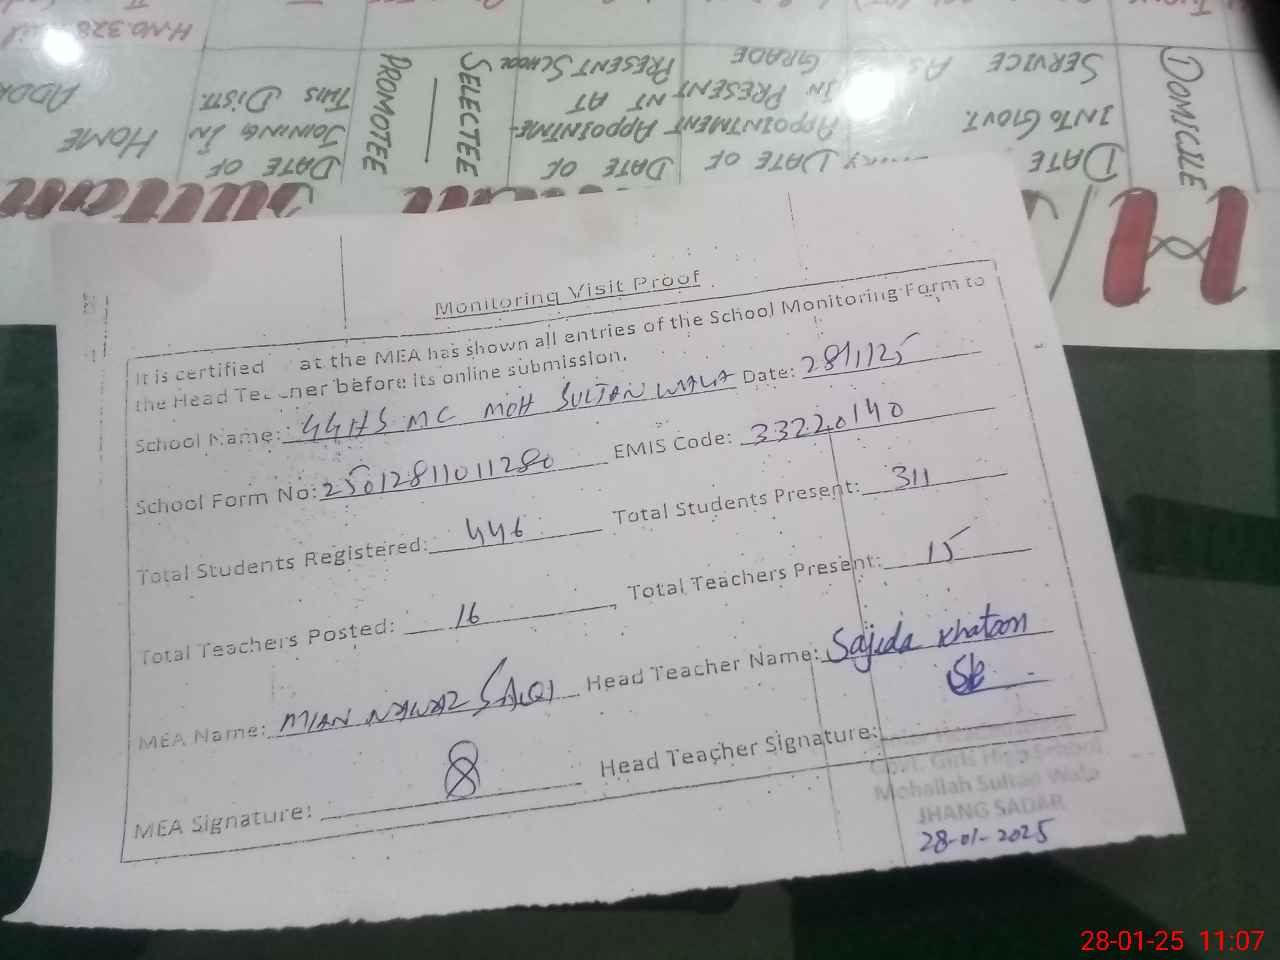 H.No.328
DOMICILE
DATE
INTO GOVT.
SERVICE AS
DATE OF
APPOINTMENT
IN PRESENT
GRADE
DATE OF
APPOINTME-
NT AT
PRESENT SCHOOL
SELECTEE
PROMOTEE
DATE OF
JOINING IN
THIS DISTT.
HOME
Monitoring Visit Proof
It is certified at the MEA has shown all entries of the School Monitoring Form to
the Head Te ner before its online submission.
School Name: GGHS MC MOH SULTAN WALA Date: 28/1/25
School Form No: 25012811011280 EMIS Code: 33220140
Total Students Registered: 446 Total Students Present: 311
Total Teachers Posted: 16 Total Teachers Present: 15
MEA Name: MIAN NAWAZ SAQI Head Teacher Name: Sajida Khatoon
MEA Signature: Head Teacher Signature:
Govt. Girls High School
Mohallah Sultan Wala
JHANG SADAR
28-01-2025
28-01-25 11:07